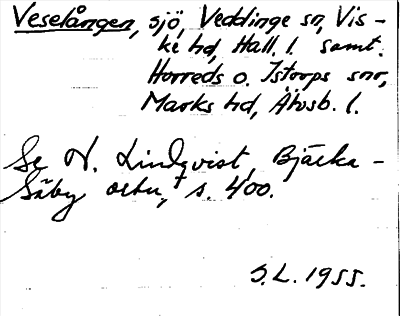 Veselången, sjö, Veddinge sn, Vis-
ke hd, Hall. l. samt.
Horreds o. Istorps snr,
Marks hd, Älvsb. l.
Se N. Lindqvist, Bjärka-
Säby ortn, s. 400.
S.L. 1955.